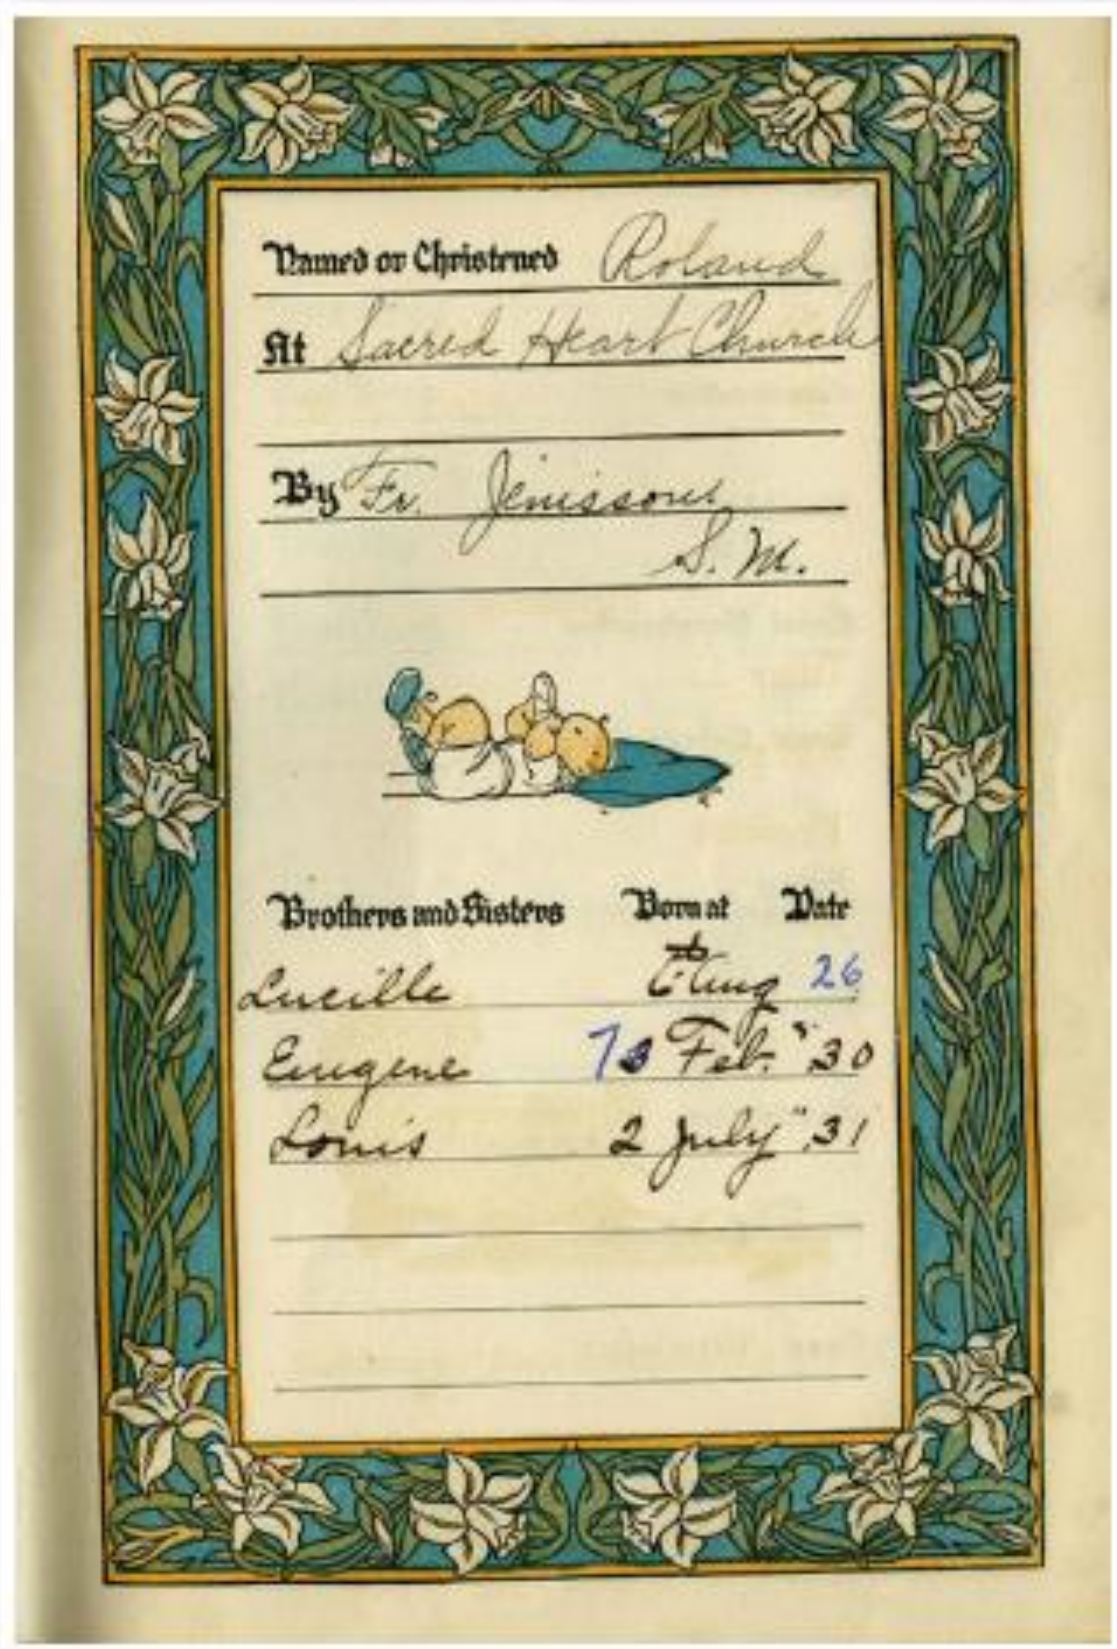 Named or Christened Roland
At Sacred Heart Church
By Fr. Jenissons
S. M.
Brothers and Sisters Born at Date
Lucille Aug 26
Eugene Feb. " 30
Louis 2 July " 31